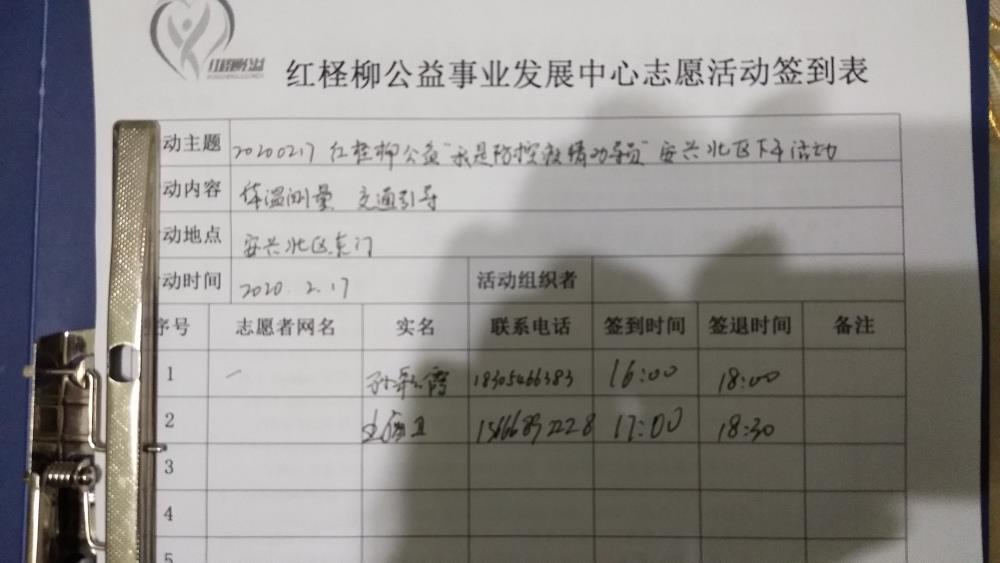 红柽柳公益事业发展中心志愿活动签到表
动主题 20200217 红柽柳公益"我是防控疫情动导员" 安兴北区下午活动
动内容 体温测量 交通引导
动地点 安兴北区东门
动时间 2020.2.17 活动组织者
序号 志愿者网名 实名 联系电话 签到时间 签退时间 备注
1 18305466383 16:00 18:00
2 15666892228 17:00 18:30
3
4
5